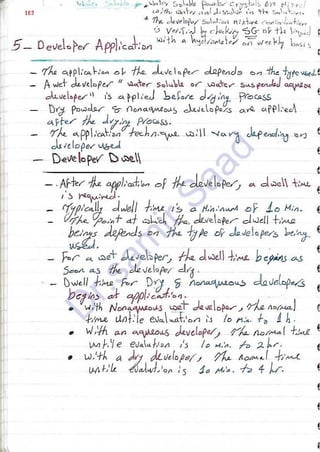 163
Water Soluble → Water Soluble powder crystals are placed
with water and dissolve in the solution.
* The developer solution mixture concentration
is verified by checking SG of the liquid
with a hydrometer on weekly basis
5- Developer Application
- The application of the developer depends on the type used.
- A wet developer "water soluble or water suspended aqueous
developer" is applied before drying Process
- Dry Powder & nonaqueous developers are applied
after the drying Process.
- The application technique will vary depending on
developer used
- Developer Dwell
- After the application of the developer, a dwell time
is required.
- Typically dwell time is a Minimum of 10 Min.
- The Point at which the developer dwell time
beings depends on the type of developers being
used.
- For a wet developer, the dwell time begins as
soon as the developer dry.
- Dwell time For Dry & nonaqueous developers
begins at application.
• With Nonaqueous wet developer, The normal
time untile evaluation is 10 min. to 1 h.
• With an aqueous developer, The normal time
untile evalution is 10 min. to 2 hr.
• With a dry developer, The normal time
untile evalution is 10 min. to 4 hr.